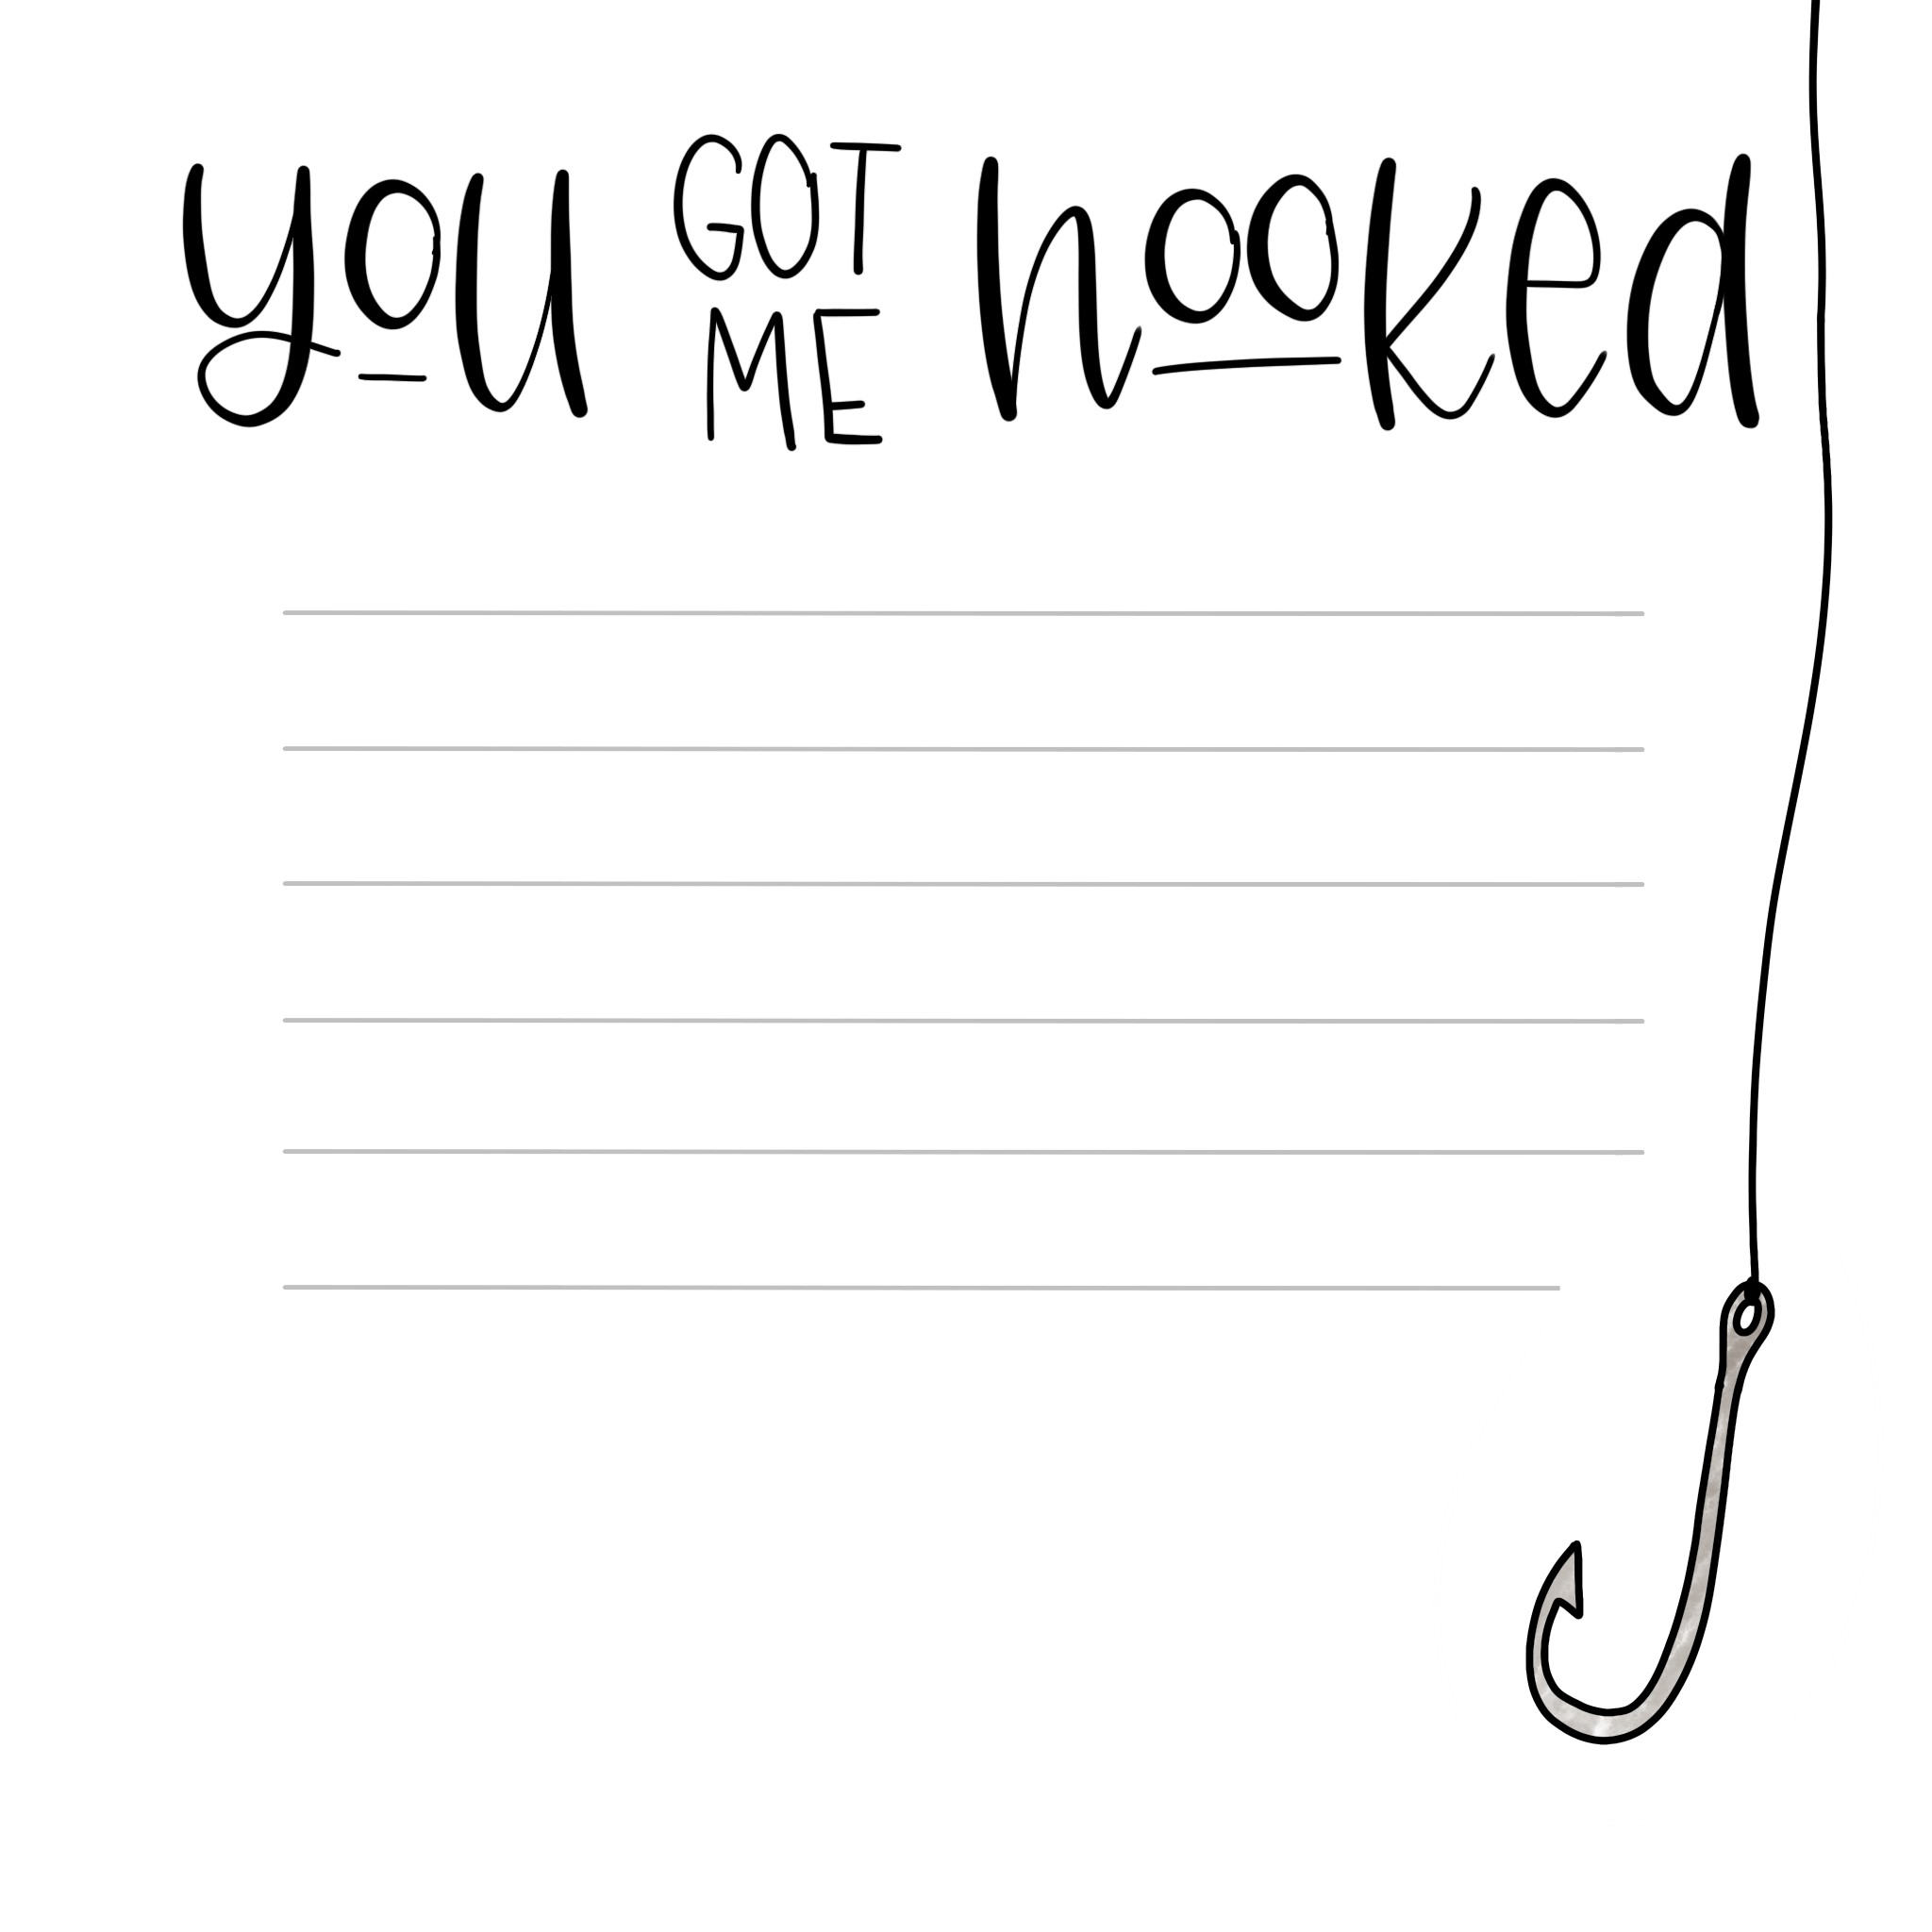 you GOT ME hooked